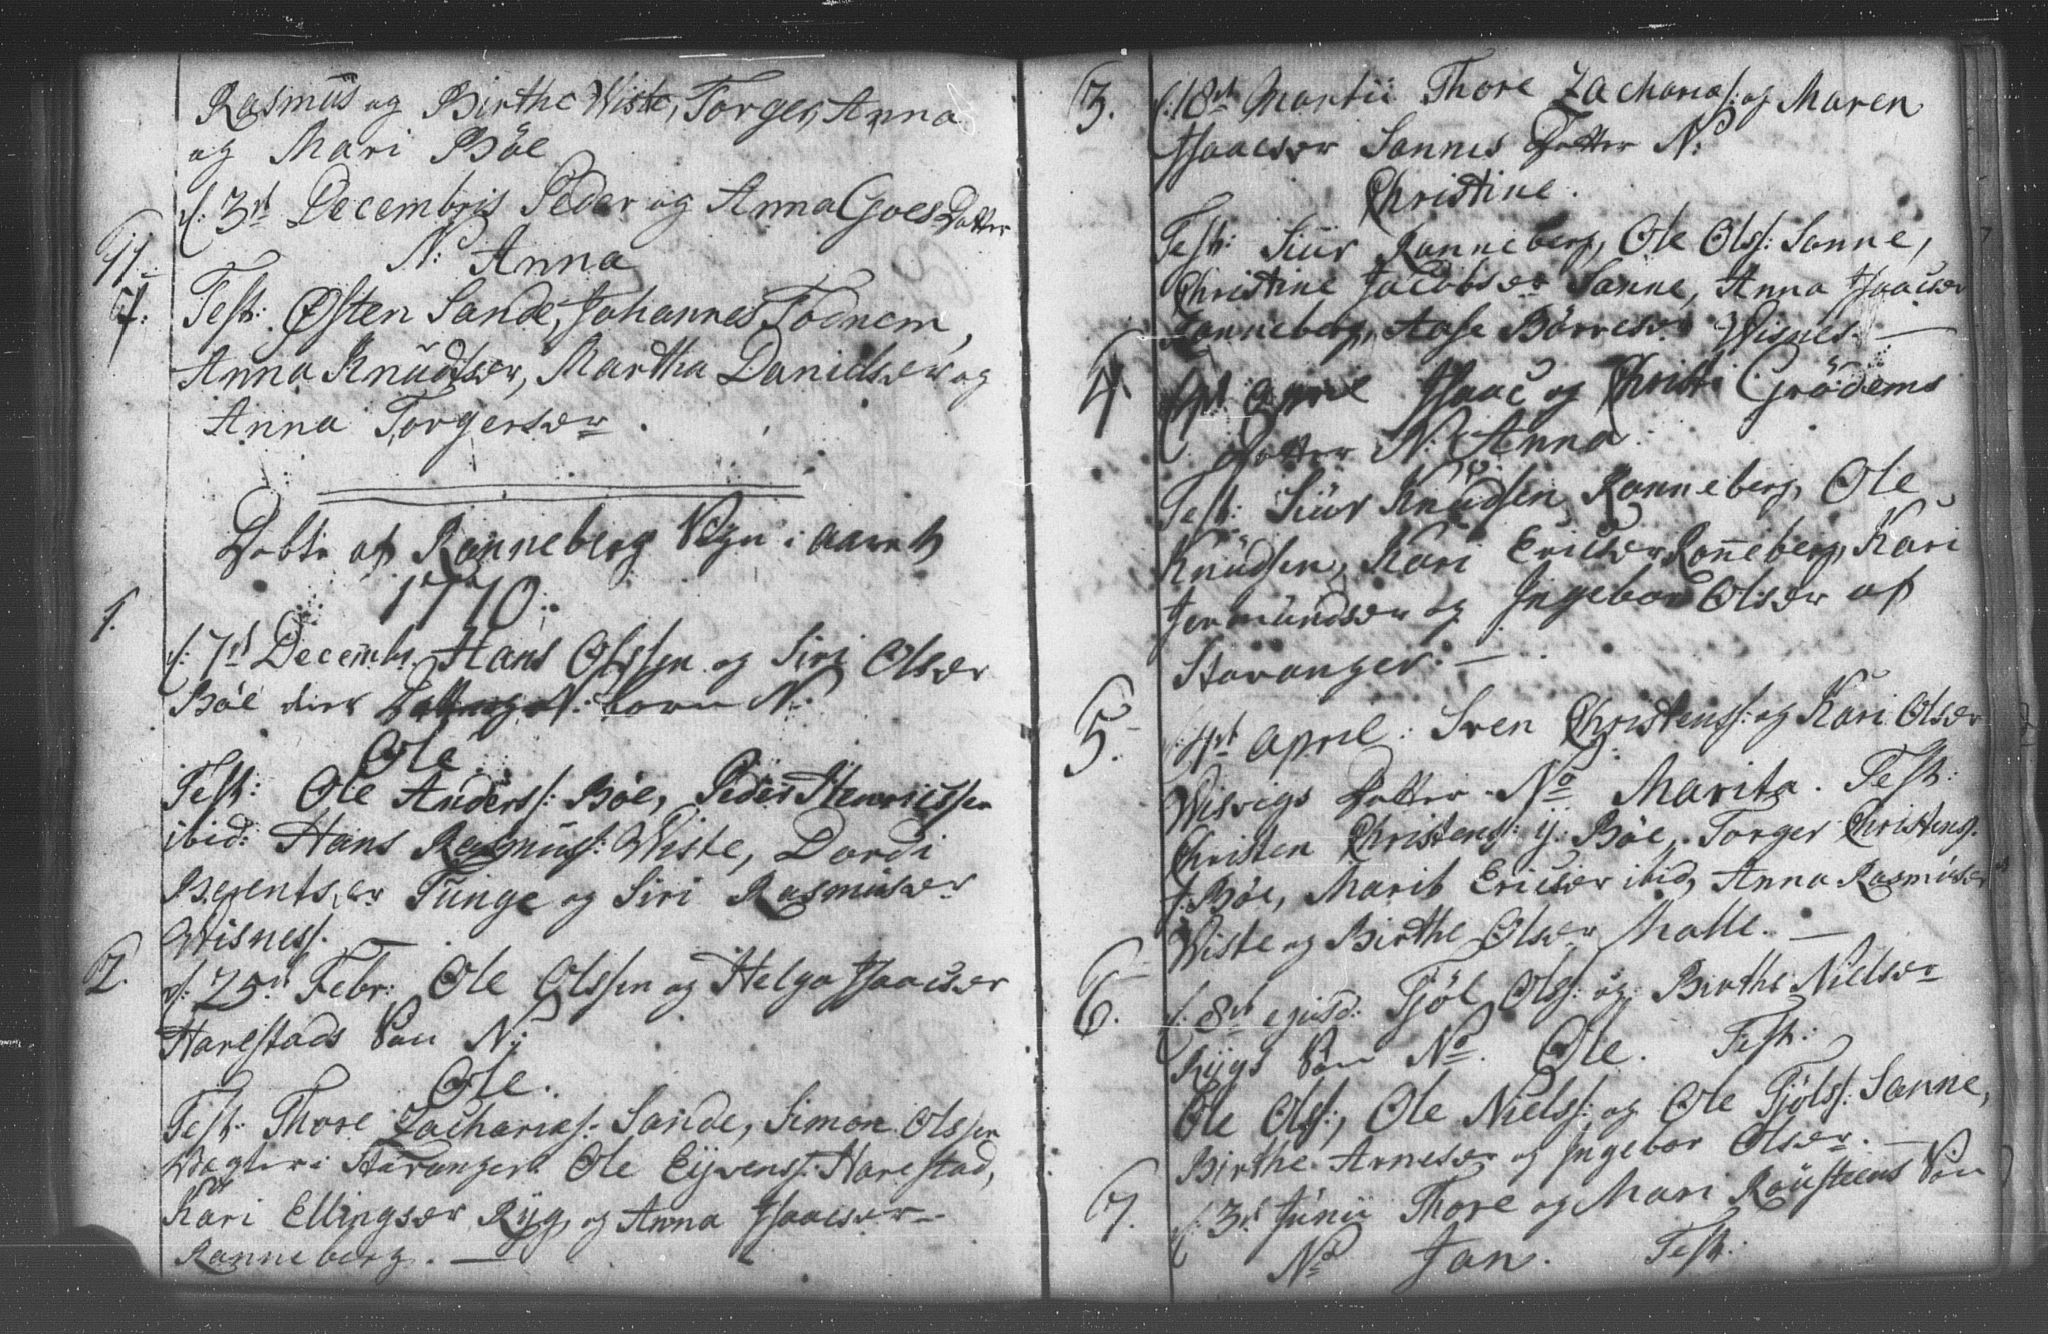 Rasmus og Birthe Wiste, Torger, Anna
og Mari Böe
d: 3die Decembris Peder og Anna Goes Datter
11. N: Anna
Test: Østen Sande, Johannes Todnem,
Anna Knüdsær, Martha Danielsær og
Anna Torgersær.
Döbte af Ranneberg Sogn i aaret
1770.
1.
d: 7de Decembr. Hans Olssen og Siri Olsær
Böe deres barn N:
Ole
Test: Ole Anderss: Böe, Peder Henricssen
ibid: Hans Rasmüss: Wiste, Dordi
Berentsær Tünge og Siri Rasmüsær
Wisness.
2. d: 25de Febr: Ole Olssen og Helga Isaacsær
Harestads Sön N:
Ole.
Test: Thore Zacharias: Sande, Simon Olssen
Wægter i Stavanger Ole Eyvens: Harestad,
Kari Ellingsær Ryg, og Anna Isaacsær
Ranneberg. —
3. d: 18de Martii Thore Zacharias: og Maren
Isaacsær Sannes Datter N:
Christine.
Test: Siür Ranneberg, Ole Olss: Sanne,
Christine Jacobsær Sanne, Anna Isaacsær
Ranneberg, Aase Börresær Wisnes. —
4. April Isaac og Christi Grödems
Datter N: Anna
Test: Siür Knüdsen Ranneberg, Ole
Knüdsen, Kari Ericsær Ranneberg, Kari
Jermundsær og Ingebor Olsær af
Stavanger. —
5. d: 4de April: Sven Christenss: og Kari Olsær
Wisvigs Datter No Marita. Test:
Christen Christenss: y: Böe, Torger Christens.
s: Böe, Marit Ericsær ibid, Anna Rasmüsær
Wiste og Birthe Olsær Malle. —
6. d: 8de ejusd: Tjöl Olss: og Birthe Nielsær
Rygs Sön No Ole. Test:
Ole Olss:, Ole Nielss: og Ole Tjölss: Sanne,
Birthe Arnesær og Ingebor Olsær. —
7. d: 3die Junii Thore og Mari Röüsteens Sön
No Jan. Test: